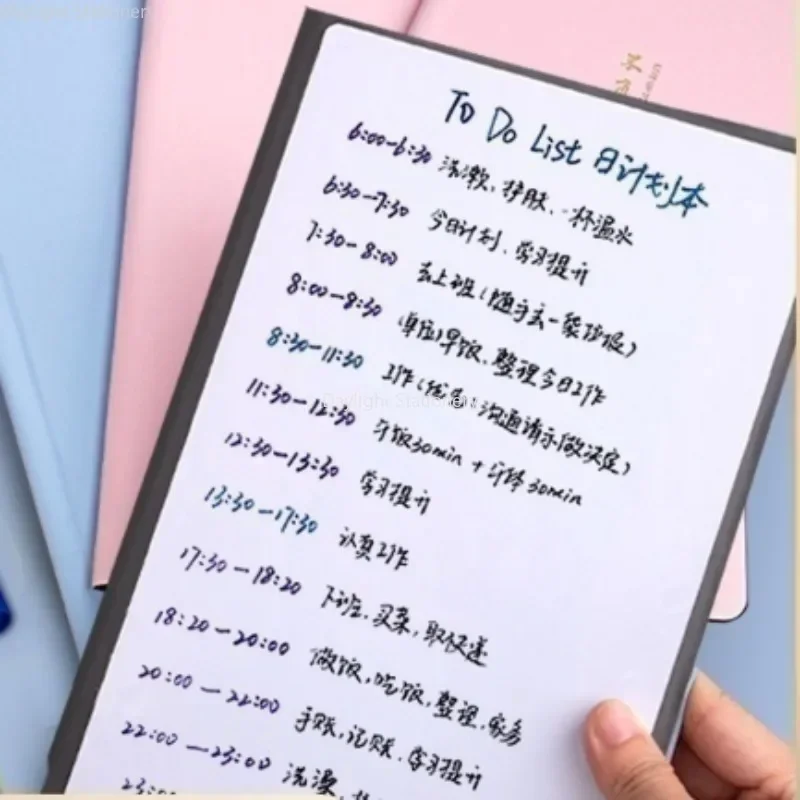 To Do List 日计划本
6:00-6:30 洗漱、护肤、一杯温水
6:30-7:30 今日计划、学习提升
7:30-8:00 去上班(随手去一袋垃圾)
8:00-8:30 (单位)早饭、整理今日工作
8:30-11:30 工作( 沟通请示做决定)
11:30-12:30 午饭30min + 午休30min
12:30-13:30 学习提升
13:30-17:30 认真工作
17:30-18:20 下班,买菜,取快递
18:20-20:00 做饭,吃饭,整理,家务
20:00-22:00 手账,记账、学习提升
22:00-23:00 洗澡,
23:00
Daylight Stationery